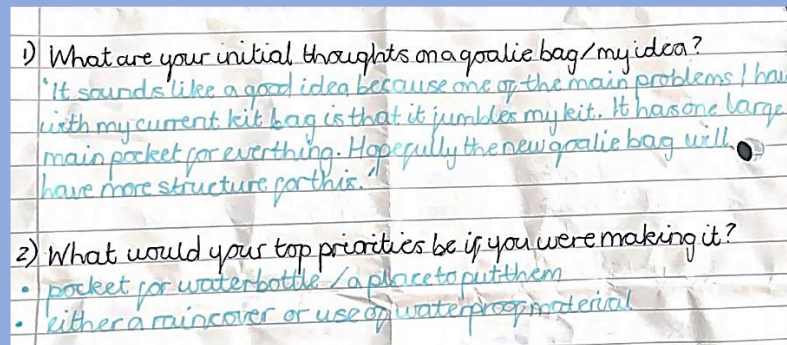 1) What are your initial thoughts on a goalie bag/my idea?
"It sounds like a good idea because one of the main problems I hav
with my current kit bag is that it jumbles my kit. It has one large
main pocket for everthing. Hopefully the new goalie bag will
have more structure for this."
2) What would your top priorities be if you were making it?
• pocket for waterbottle / a place to put them
• either a raincover or use of waterproof material